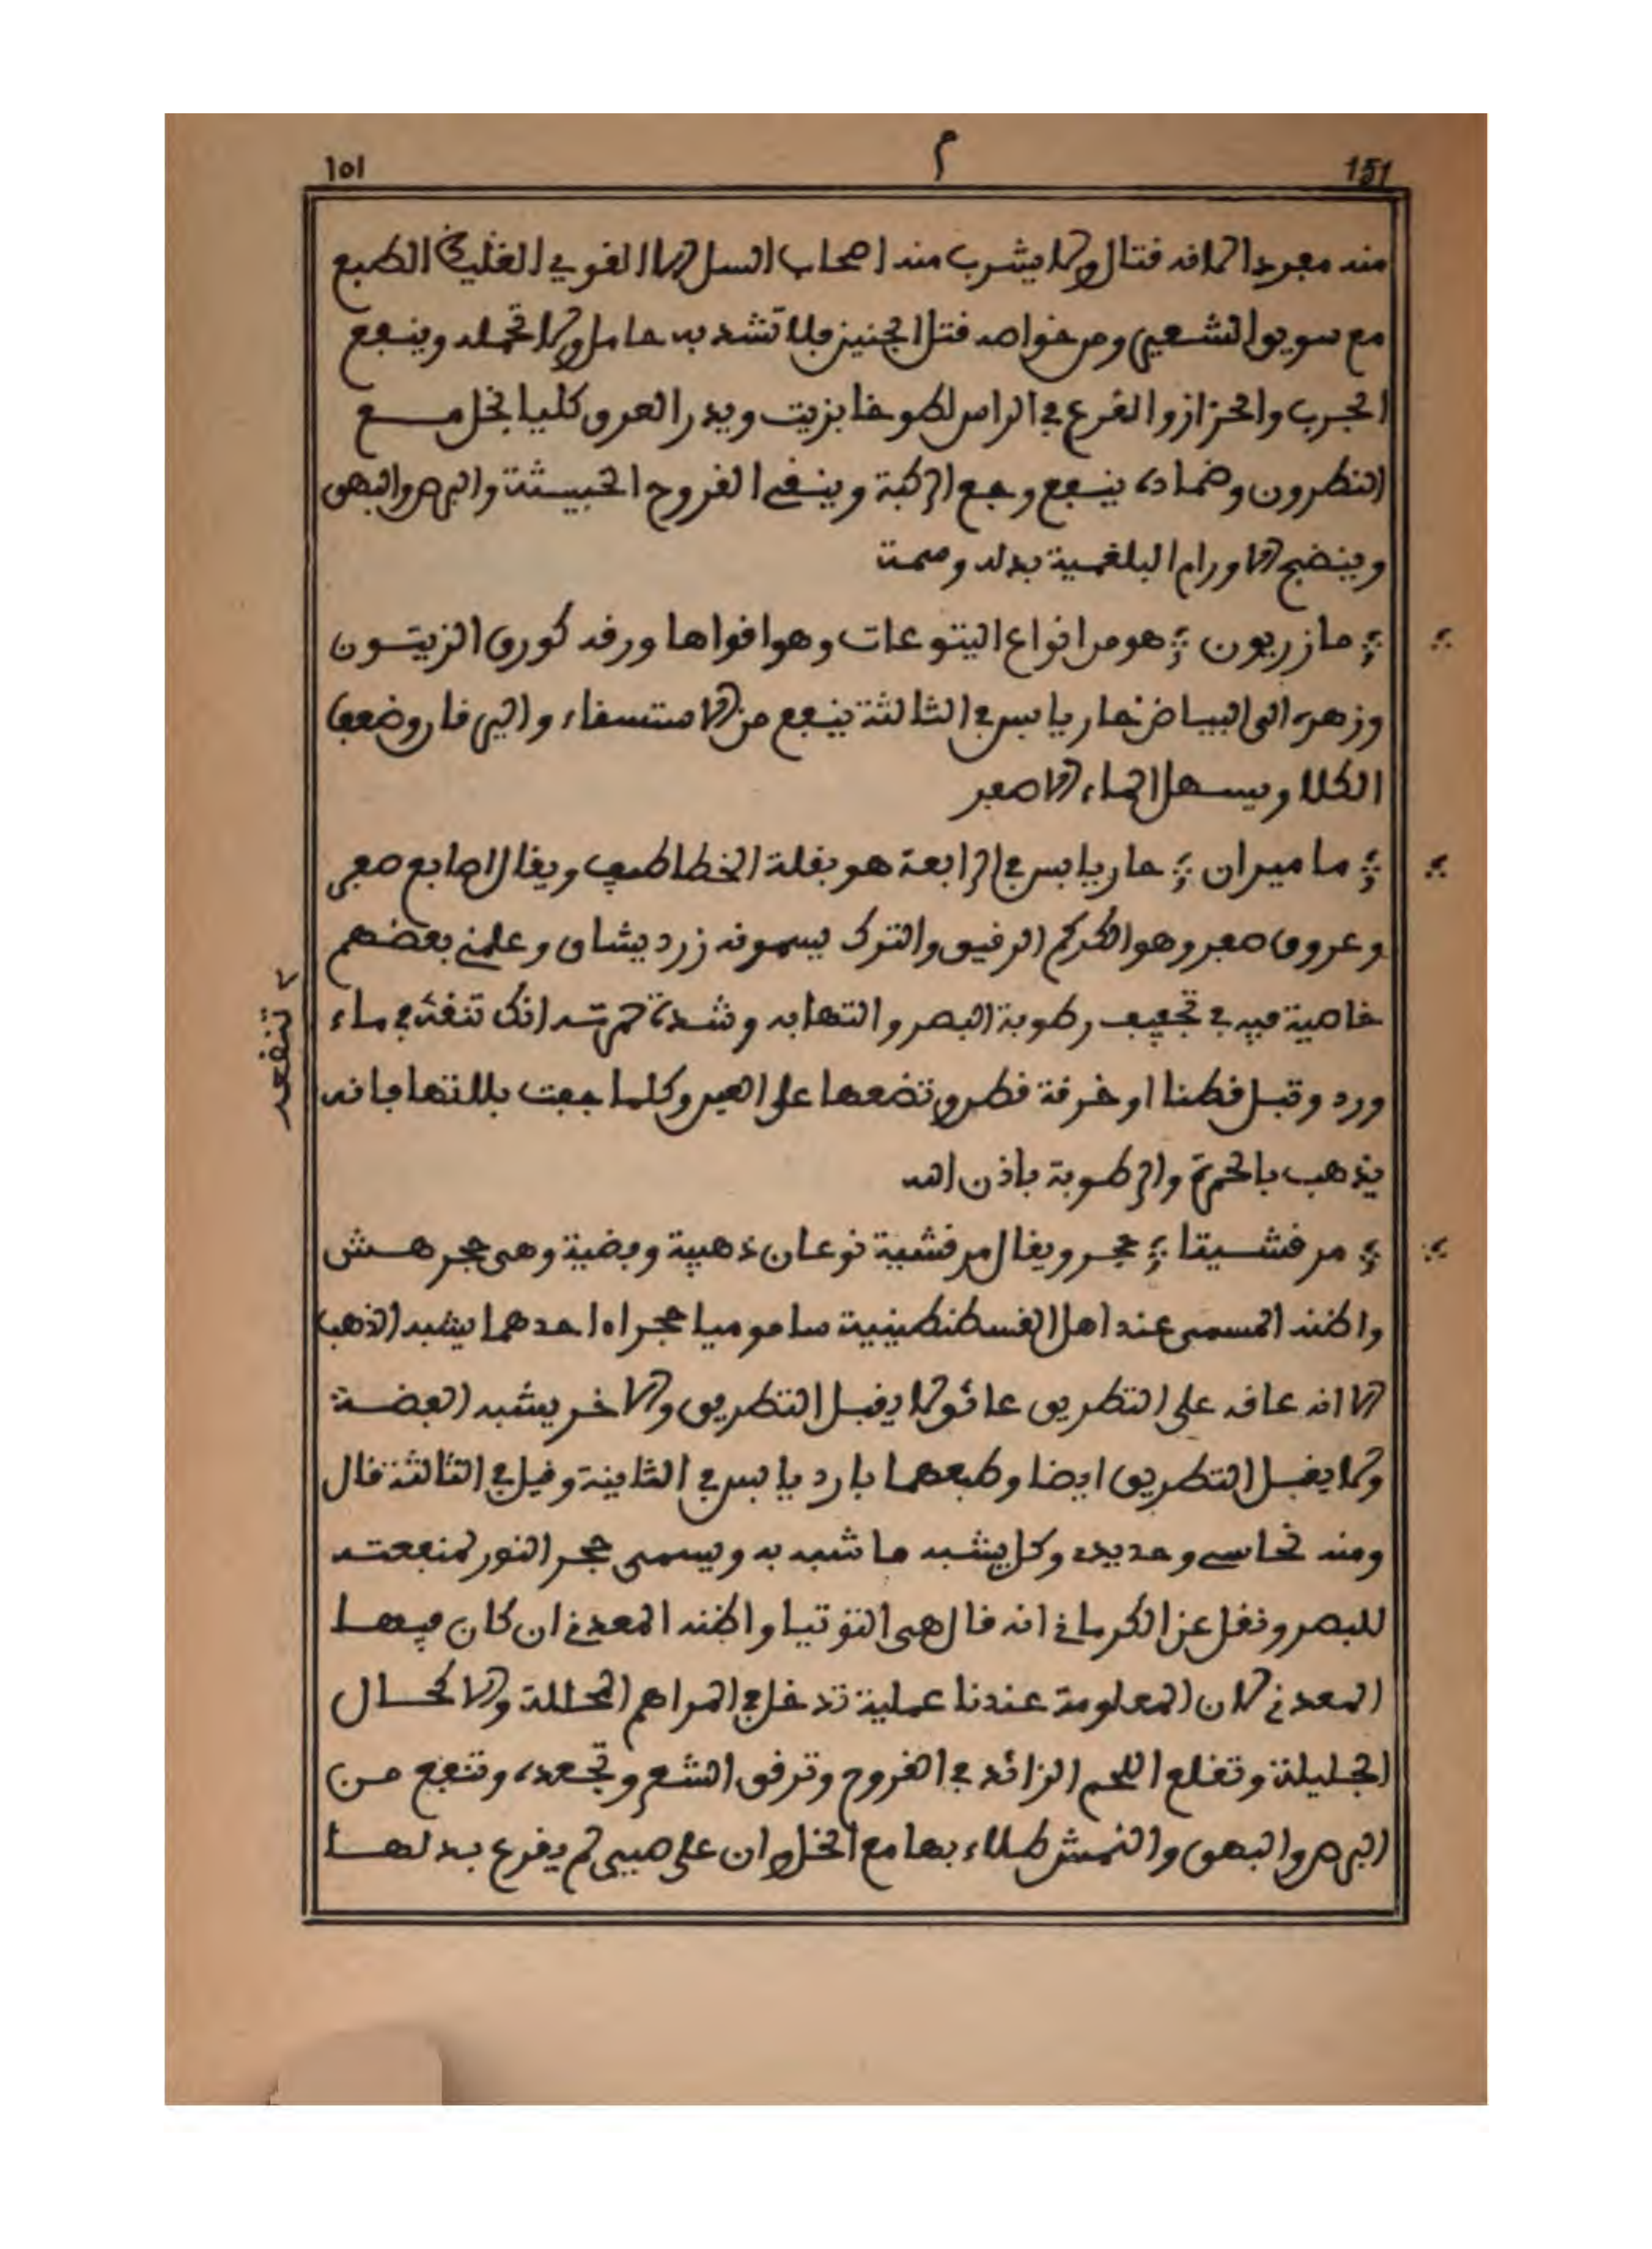 151 م ١٥١
منه مجردا لانه قتال ولا يشرب منه اصحاب السل الا القوي الغليظ الطبع
مع سويق الشعير ومن خواصه قتل الجنين فلا تشد به حامل ولا تحمله وينفع
الجرب والحزاز والقرع في الراس لطوخا بزيت ويدر العرق كليا بخل مع
النطرون وضماده ينفع وجع الركبة وينقي القروح الخبيثة والبرص والبهق
وينضج الاورام البلغمية بدله وسمة
مازريون هو من انواع اليتوعات وهو اقواها ورقه كورق الزيتون
وزهره الى البياض حار يابس في الثالثة ينفع من الاستسفاء واليرقان وضعف
الكلا ويسهل الماء الاصفر
ماميران حار يابس في الرابعة هو بقلة الخطاطيف ويقال اصابع صفر
وعروق صفر وهو الكركم الرقيق والترك يسمونه زرديشاق وعلمني بعضهم
خاصية فيه في تجفيف رطوبة البصر والتهابه وشدة حمرته انك تنقه في ماء
تنقعه
ورد وتبل قطنا او خرقة قطن وتضعها على العين وكلما جفت بللتها فانه
يذهب بالحمرة والرطوبة باذن الله
مرقشيتا حجر ويقال مرقشية نوعان ذهبية وفضية وهي حجر هش
واظنه المسمى عند اهل القسطنطينية سامو ميا حجراه احدهما يشبه الذهب
الا انه عاقه على التطريق عائق لا يقبل التطريق والاخر يشبه الفضة
ولا يقبل التطريق ايضا وطبعهما بارد يابس في الثانية وقيل في الثالثة قال
ومنه نحاسي وحديدي وكل يشبه ما شبه به ويسمى حجر النور لمنفعته
للبصر ونقل عن الكرماني انه قال هي التوتيا واظنه المعدني ان كان فيها
المعدني لان المعلومة عندنا عملية تدخل في المراهم المحللة والاكحال
الجليلة وتقلع اللحم الزائد في القروح وترقق الشعر وتجعده وتنفع من
البرص والبهق والنمش طلاء بها مع الخل وان على صبي لم يفزع بدلها